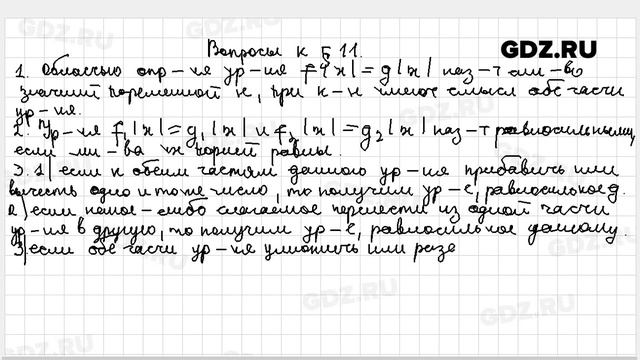 Вопросы к § 11.
GDZ.RU
1. Областью опр-ия ур-ия f(x)=g(x) наз-т мн-во
значений переменной x, при к-х имеют смысл обе части
ур-ия.
2. Ур-ия f₁(x)=g₁(x) и f₂(x)=g₂(x) наз-т равносильными,
если мн-ва их корней равны.
3. 1) если к обеим частям данного ур-ия прибавить или
вычесть одно и то же число, то получим ур-е, равносильное д.
2) если какое-либо слагаемое перенести из одной части
ур-ия в другую, то получим ур-е, равносильное данному.
3) если обе части ур-ия умножить или разде